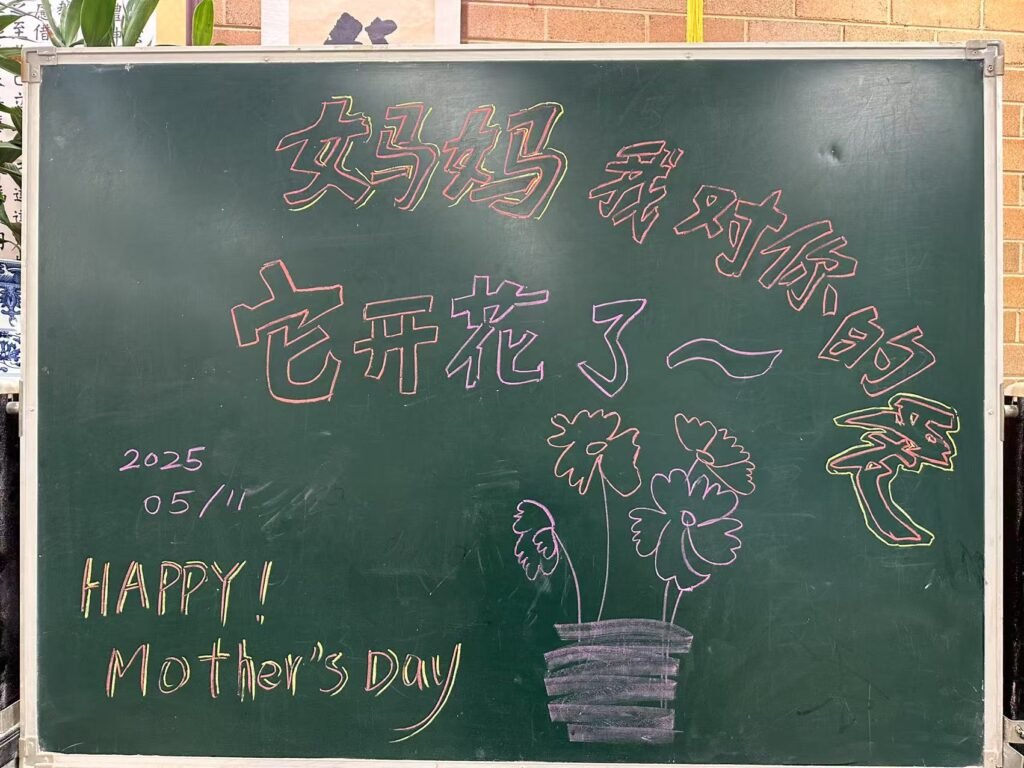 妈妈 我对你的爱
它开花了~
2025
05/11
HAPPY!
Mother's Day